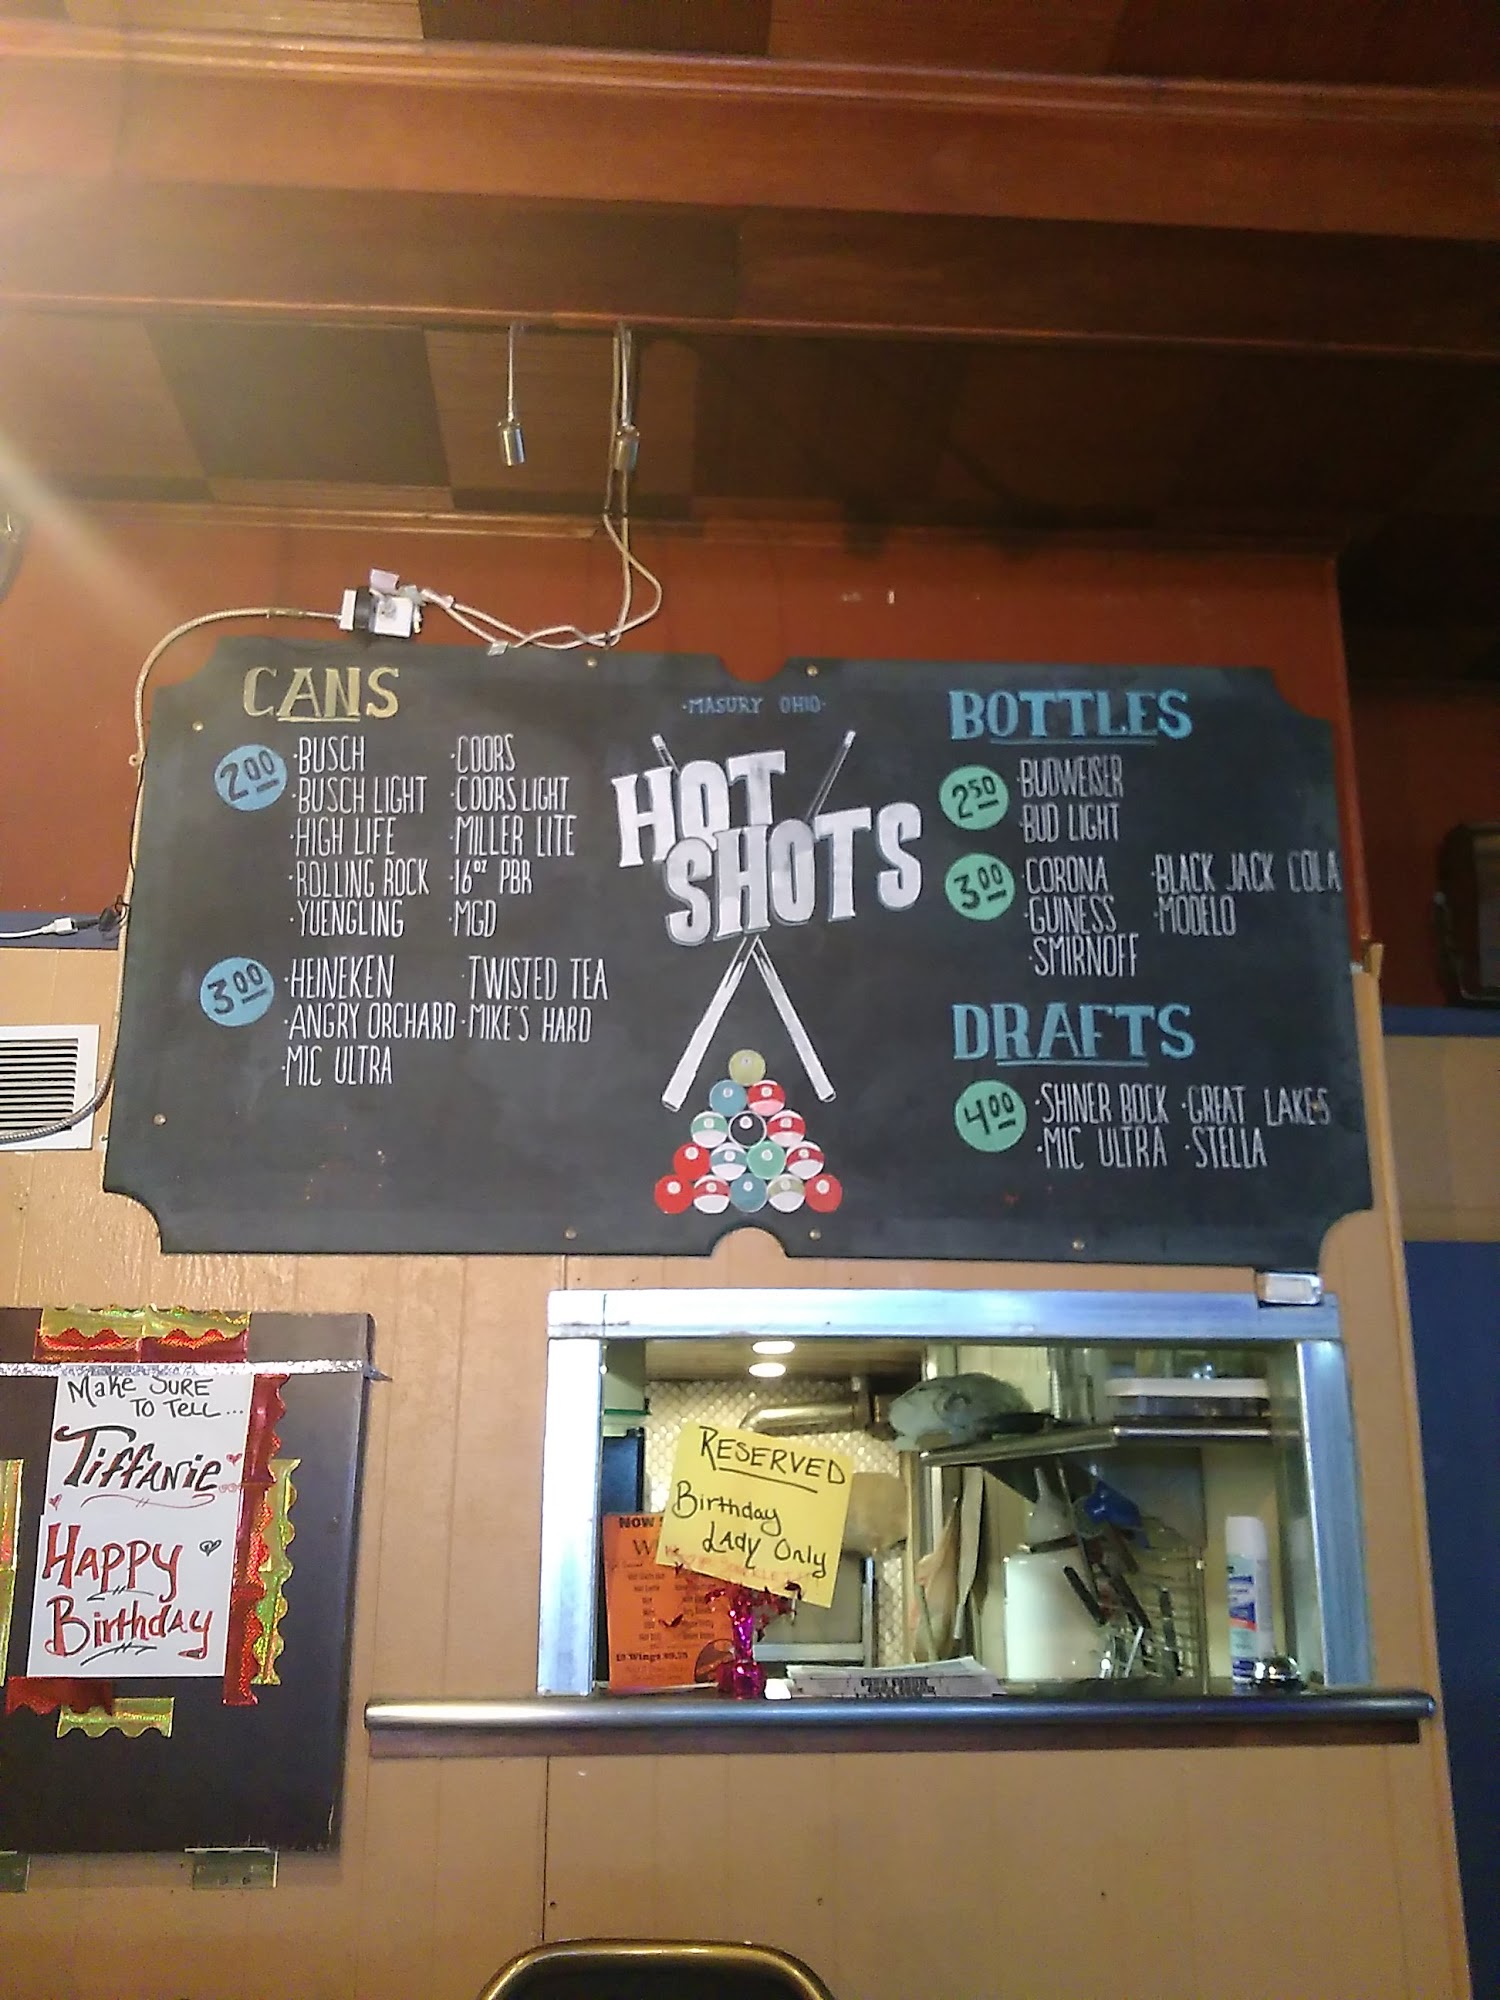 CANS
2.00
·BUSCH
·BUSCH LIGHT
·HIGH LIFE
·ROLLING ROCK
·YUENGLING
·COORS
·COORS LIGHT
·MILLER LITE
·16oz PBR
·MGD
3.00
·HEINEKEN
·ANGRY ORCHARD
·MIC ULTRA
·TWISTED TEA
·MIKE'S HARD
·MASURY OHIO·
HOT
SHOTS
BOTTLES
2.50
·BUDWEISER
·BUD LIGHT
3.00
·CORONA
·GUINESS
·SMIRNOFF
·BLACK JACK COLA
·MODELO
DRAFTS
4.00
·SHINER BOCK
·MIC ULTRA
·GREAT LAKES
·STELLA
Make SURE
TO TELL...
TIFFANIE
HAPPY
BIRTHDAY
RESERVED
Birthday
LADY Only
NOW